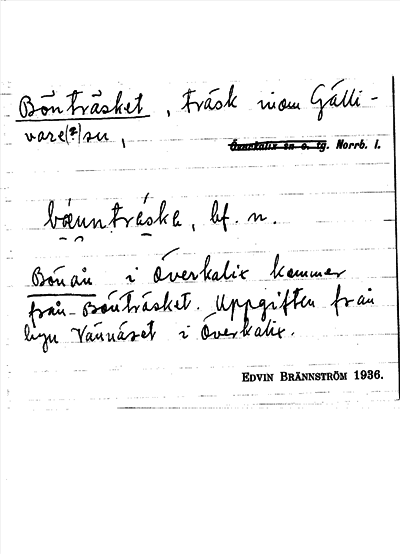 Bönträsket, träsk inom Gälli-
vare(?)sn,
Överkalix sn o. tg. Norrb. l.
bänntráska, bf. n.
Bönån i Överkalix kommer
från Bönträsket. Uppgiften från
byn Vännäset i Överkalix.
EDVIN BRÄNNSTRÖM 1936.